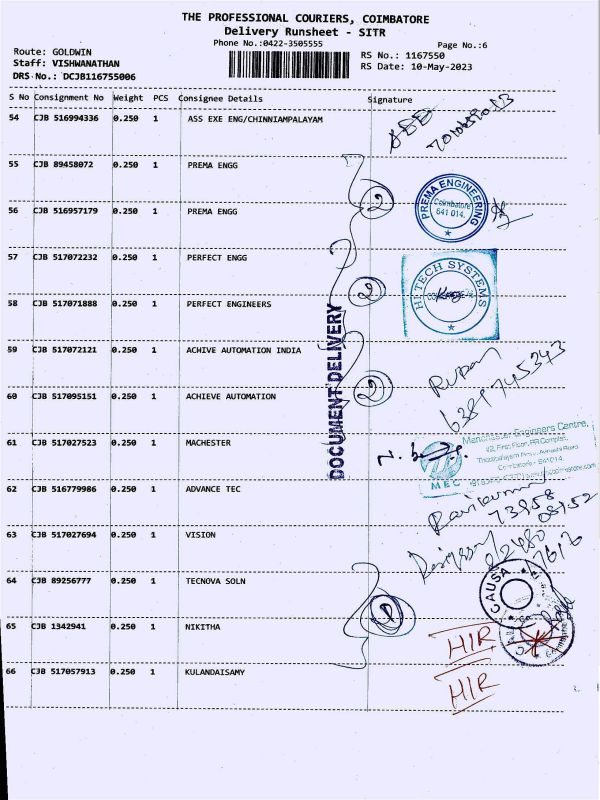 THE PROFESSIONAL COURIERS, COIMBATORE
Delivery Runsheet - SITR
Phone No.:0422-3505555
Page No.:6
Route: GOLDWIN
RS No.: 1167550
Staff: VISHWANATHAN
RS Date: 10-May-2023
DRS No.: DCJB116755006
S No Consignment No Weight PCS Consignee Details Signature
54 CJB 516994336 0.250 1 ASS EXE ENG/CHINNIAMPALAYAM
55 CJB 89458072 0.250 1 PREMA ENGG
2
PREMA ENGINEERING
Coimbatore
641 014.
56 CJB 516957179 0.250 1 PREMA ENGG
57 CJB 517072232 0.250 1 PERFECT ENGG
2
HI TECH SYSTEMS
58 CJB 517071888 0.250 1 PERFECT ENGINEERS
DOCUMENT DELIVERY
59 CJB 517072121 0.250 1 ACHIVE AUTOMATION INDIA
2
6389745343
60 CJB 517095151 0.250 1 ACHIEVE AUTOMATION
61 CJB 517027523 0.250 1 MACHESTER
Manchester Engineers Centre,
MEC
62 CJB 516779986 0.250 1 ADVANCE TEC
73958
63 CJB 517027694 0.250 1 VISION
64 CJB 89256777 0.250 1 TECNOVA SOLN
CAUSA
65 CJB 1342941 0.250 1 NIKITHA
HIR
66 CJB 517057913 0.250 1 KULANDAISAMY
HIR